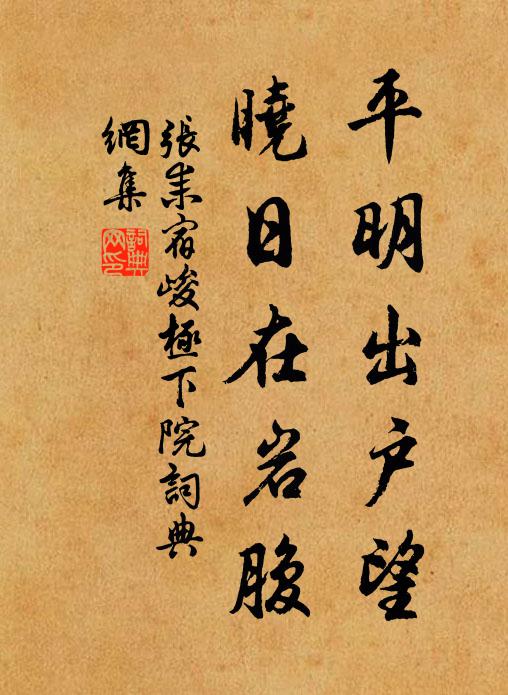 平明出户望
曉日在岩腹
張耒宿峻極下院詞典
網集
詞典
網印